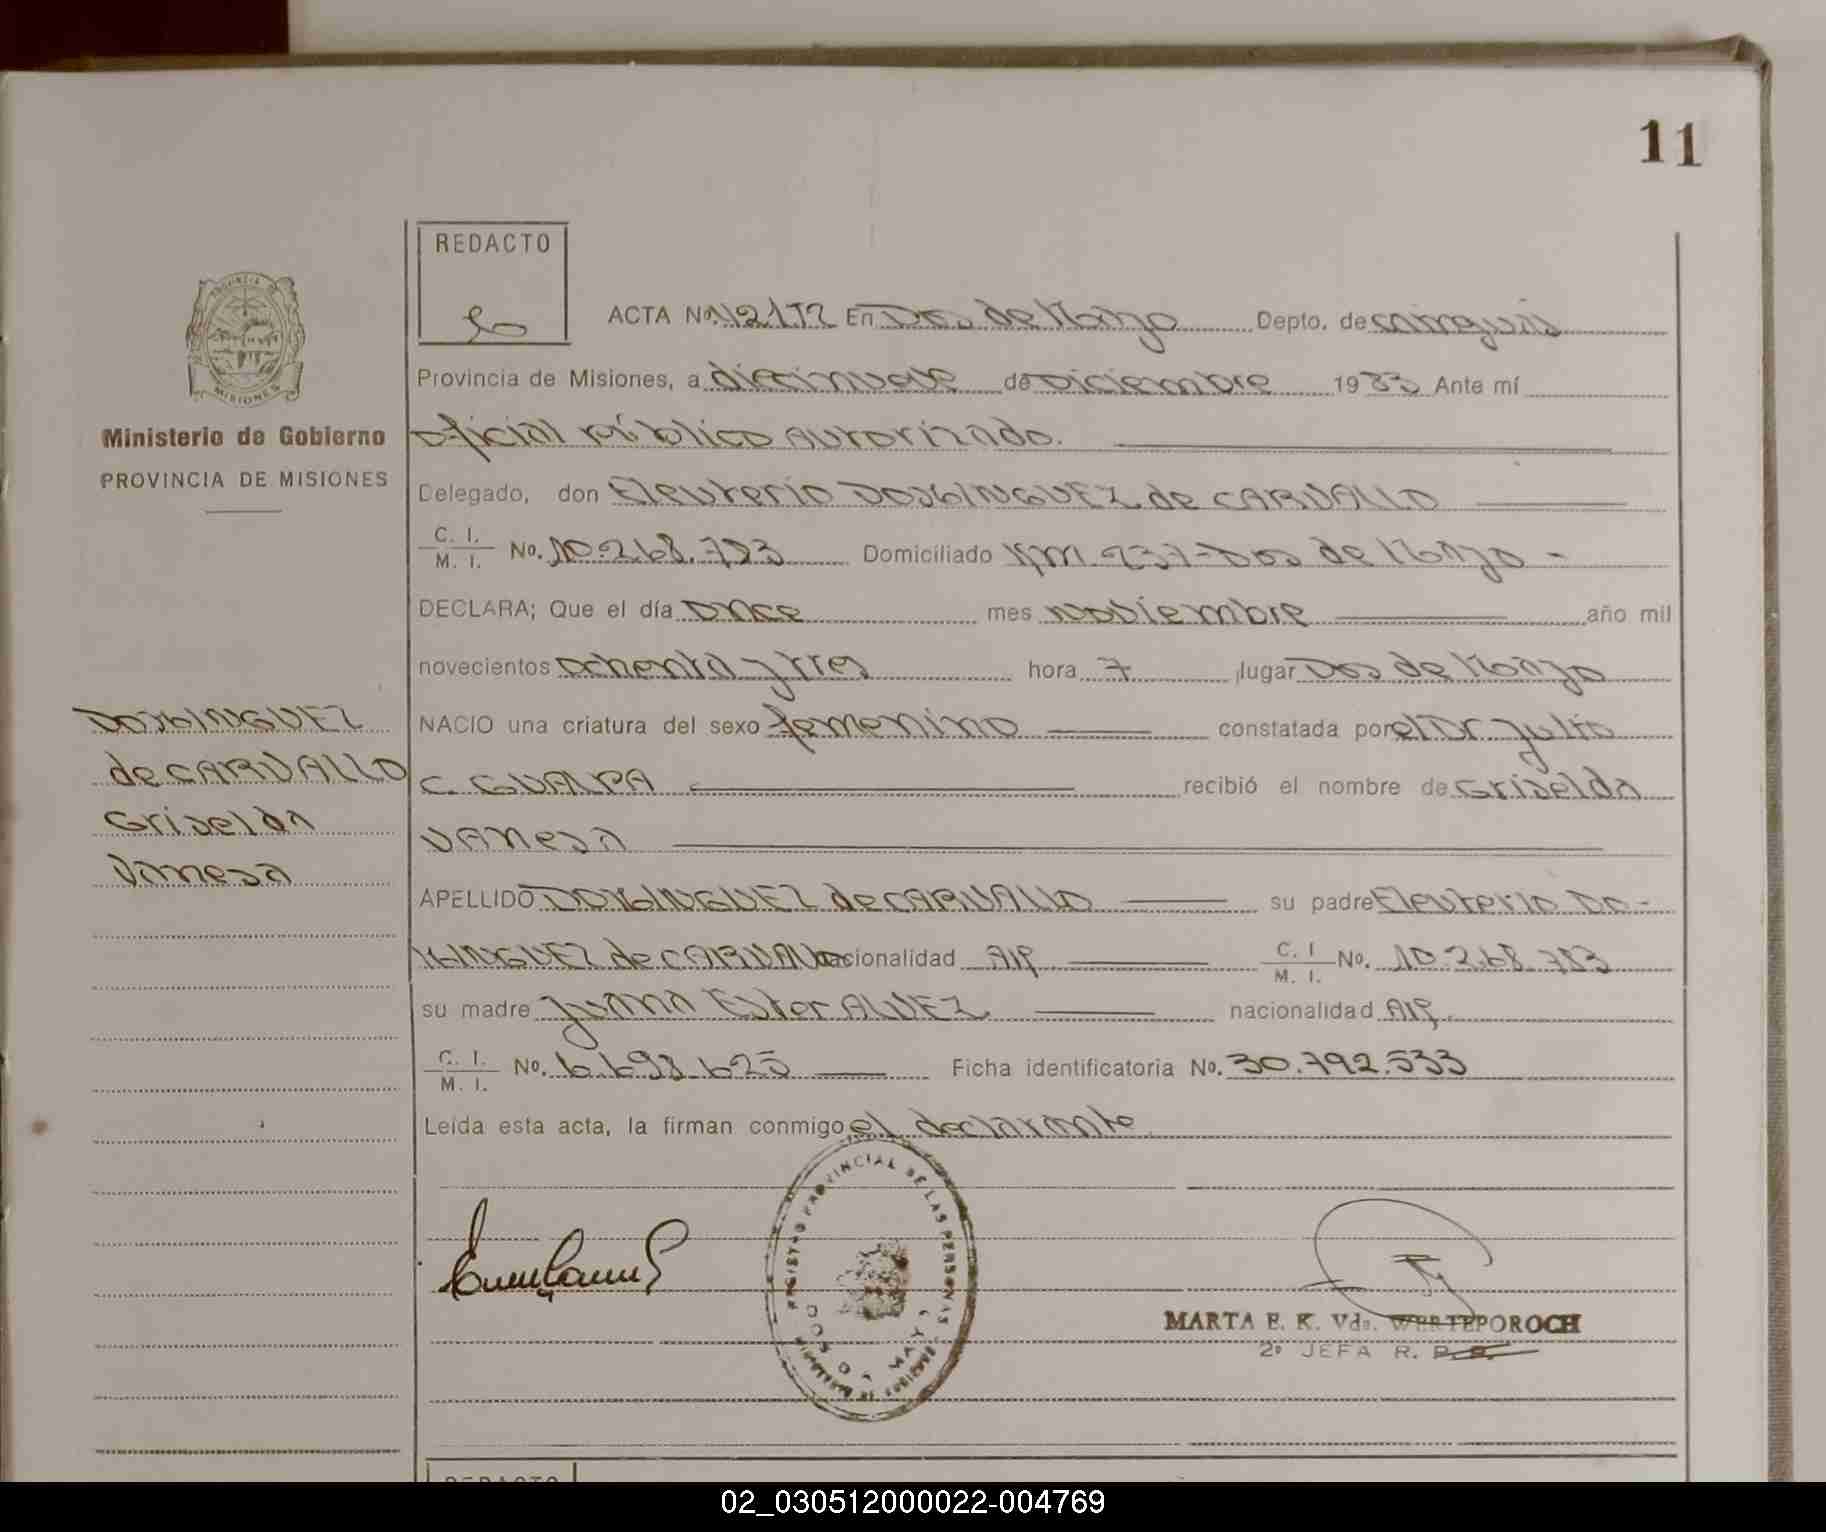 11
REDACTO
PROVINCIA DE
MISIONES
Ministerio de Gobierno
PROVINCIA DE MISIONES
ACTA No En Dos de Mayo Depto. de cainguás
Provincia de Misiones, a diecinueve de Diciembre 1983 Ante mí
Oficial público autorizado.
Delegado, don Eleuterio DOMINGUEZ de CARVALLO
C. I.
M. I. No. 10.268.783 Domiciliado Km 237-Dos de Mayo -
DECLARA; Que el día once mes noviembre año mil
novecientos ochenta y tres hora 7 lugar Dos de Mayo
DOMINGUEZ
de CARVALLO
Griselda
Vanesa
NACIO una criatura del sexo femenino constatada por el Dr Julio
C. GUALPA recibió el nombre de Griselda
Vanesa
APELLIDO DOMINGUEZ de CARVALLO su padre Eleuterio DO-
MINGUEZ de CARVALLO nacionalidad Arg C. I
M. I. No. 10.268.783
su madre Juana Ester ALVEZ nacionalidad Arg.
C. I.
M. I. No. 6.698.625 Ficha identificatoria No. 30.792.533
Leída esta acta, la firman conmigo el declarante
REGISTRO PROVINCIAL DE LAS PERSONAS
DOS DE MAYO
MARTA E. K. Vda. WERTEPOROCH
2º JEFA R. P. P.
REDACTO
02_030512000022-004769